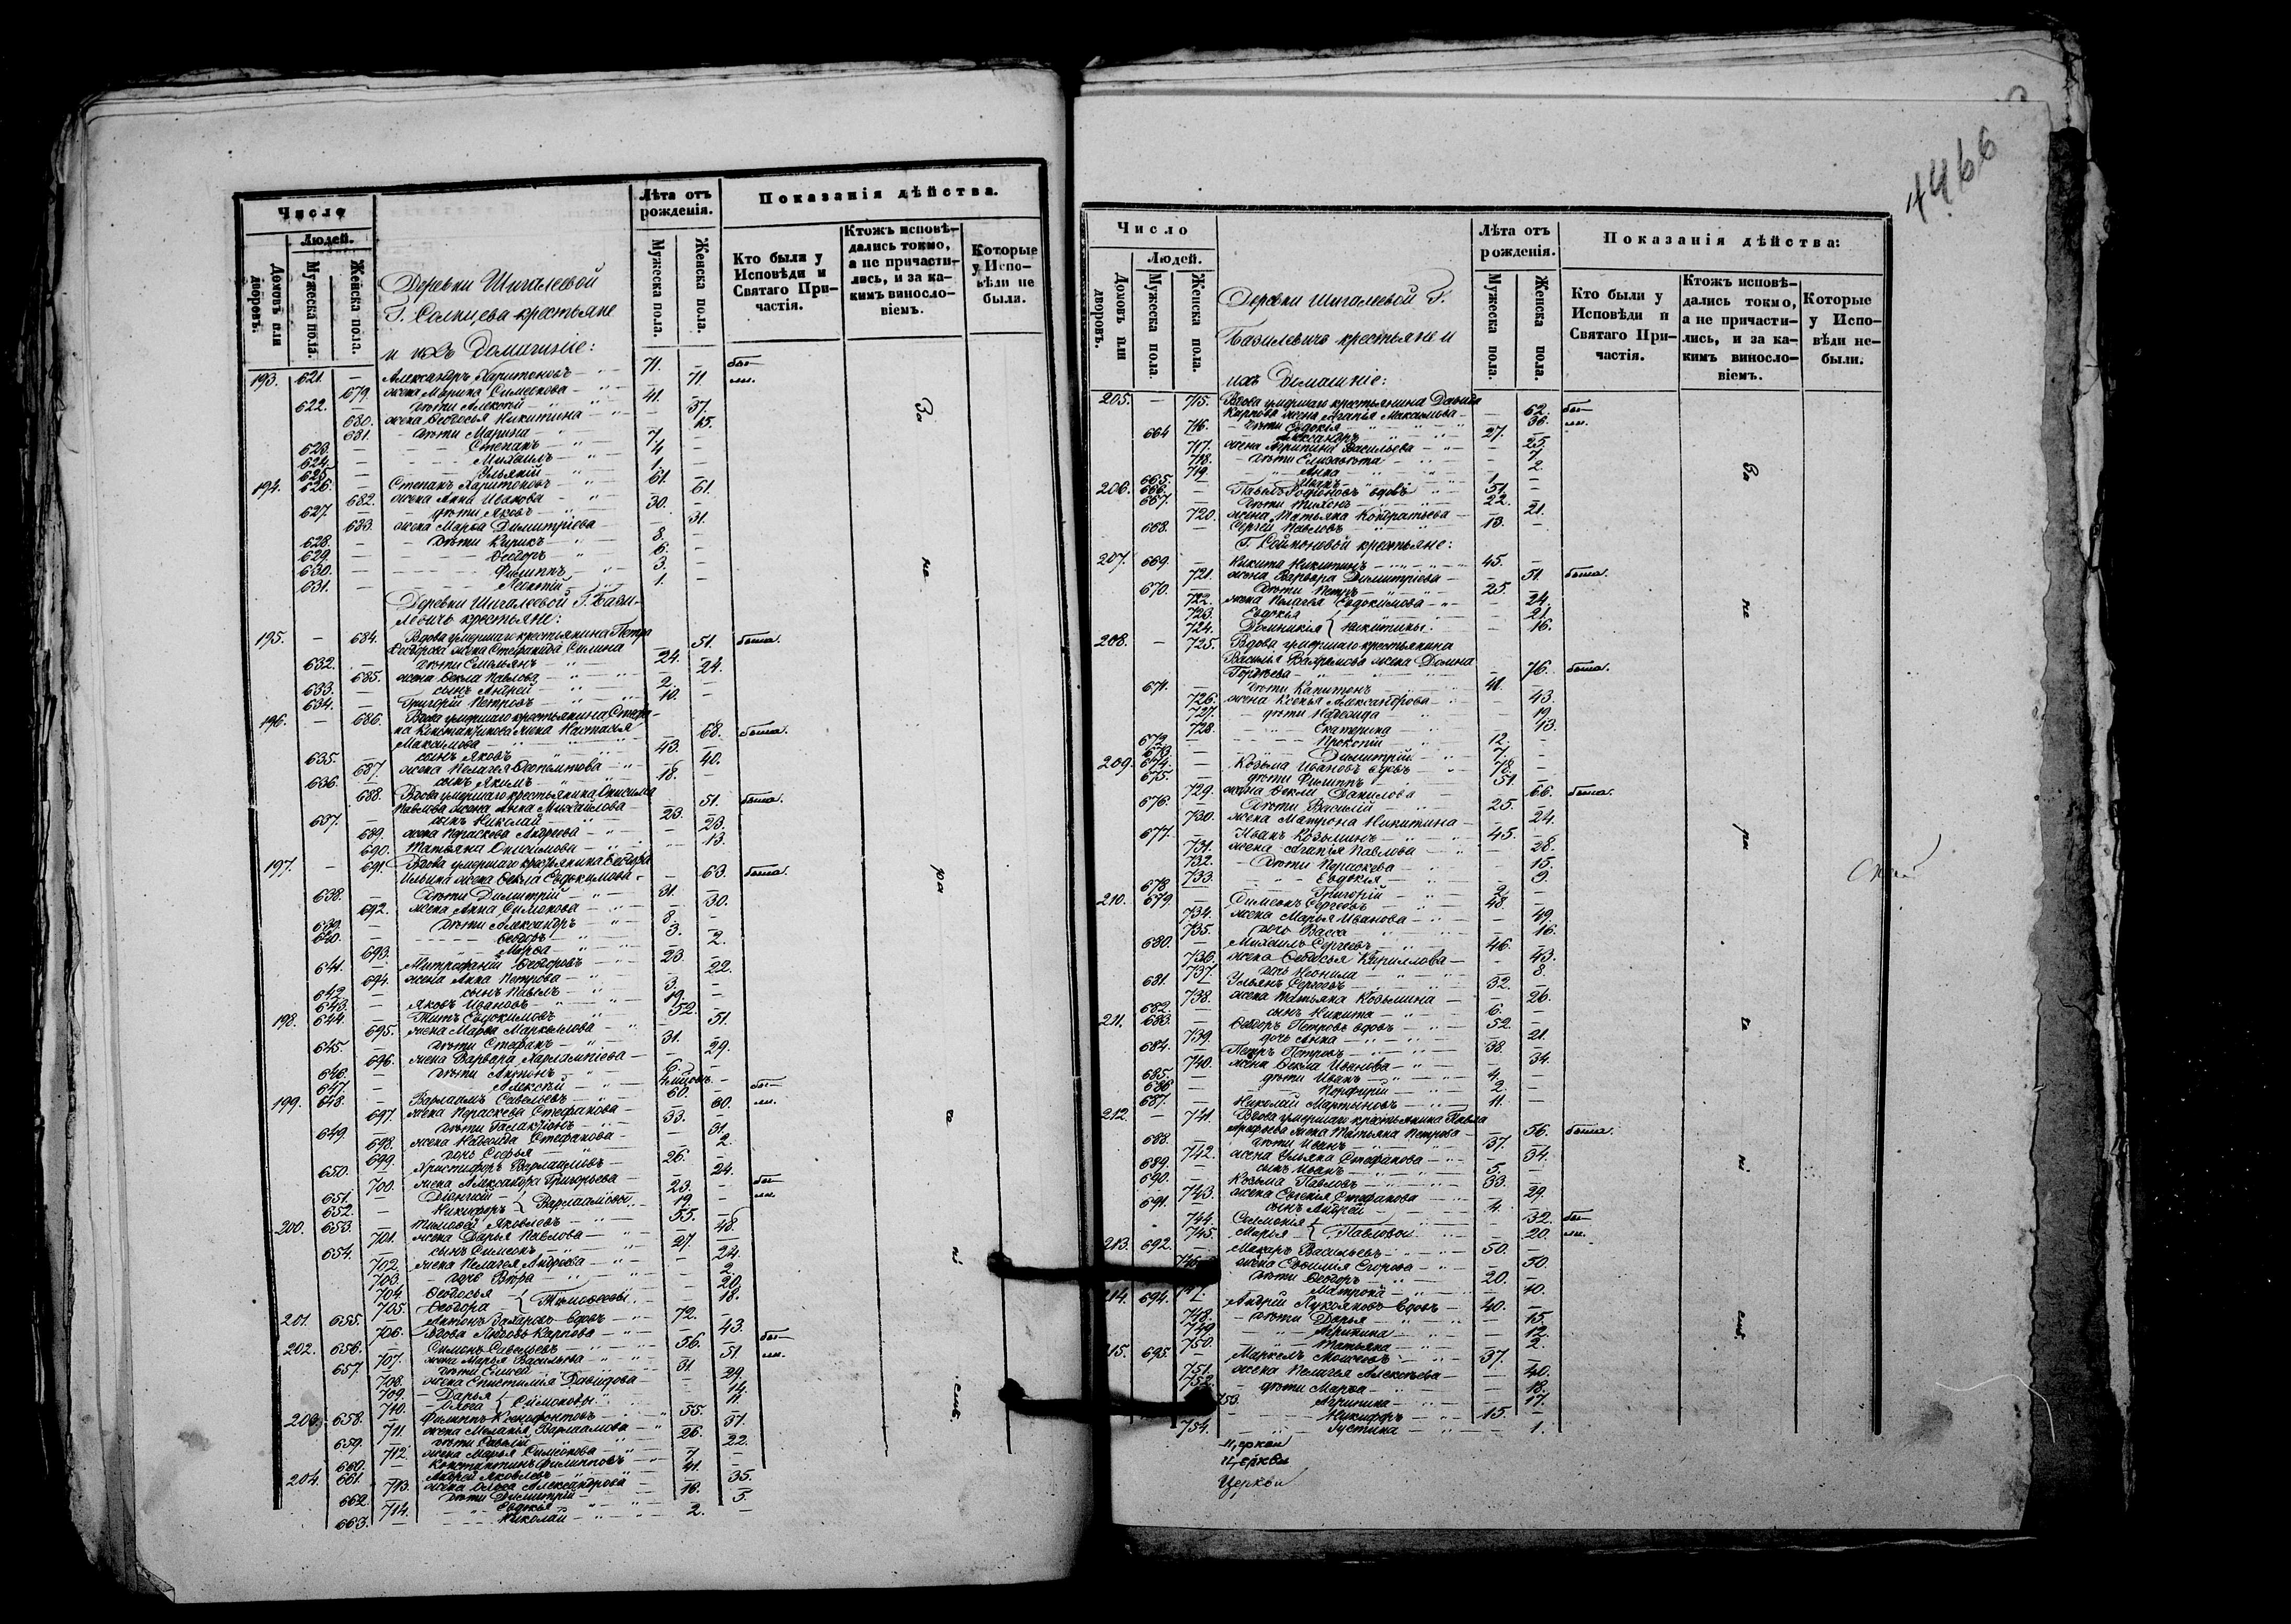 Число
Людей.
Домовъ или дворовъ.
Мужеска пола.
Женска пола.
Лѣта отъ рожденія.
Мужеска пола.
Женска пола.
Показанія дѣйства.
Кто были у Исповѣди и Святаго Причастія.
Ктожъ исповѣдались токмо, а не причастились, и за какимъ винословіемъ.
Которые у Исповѣди не были.
Деревни Шигалеевой
Г. Солнцева крестьяне
и ихъ домашніе:
193. 621. — Александръ Харитоновъ 71. — бы-
679. жена Марина Симеонова — 71. ли.
622. — дѣти Алексѣй 41. —
680. жена Ѳеодосья Никитина — 37.
681. дѣти Марина — 15.
623. — Степанъ 7. —
624. — Михаилъ 4. —
625. — 1. —
194. 626. — Степанъ Харитоновъ 61. —
682. жена Анна Иванова — 61.
627. — дѣти Яковъ 30. —
683. жена Марѳа Димитріева — 31.
628. — дѣти Кирикъ 8. —
629. — Ѳеодоръ 6. —
630. — Филиппъ 3. —
631. — Леонтій 1. —
Деревни Шигалеевой Г. Бази-
левичь крестьяне:
195. — 684. Вдова умершаго крестьянина Петра
Ѳеодорова жена Степанида Силина — 51. была.
632. — дѣти Емельянъ 24. —
685. жена Ѳекла Павлова — 24.
633. — сынъ Андрей 2. —
634. — Григорій Петровъ 10. —
196. — 686. Вдова умершаго крестьянина Стефа-
на Константинова жена Настасья
Максимова — 68. была.
635. — сынъ Яковъ 43. —
687. жена Пелагея — 40.
636. — сынъ Якимъ 18. —
688. Вдова умершаго крестьянина Онисима
Павлова жена Анна Михайлова — 51. была.
637. — сынъ Николай 23. —
689. жена Параскева Андреева — 23.
690. Татьяна Онисимова — 13.
197. — 691. Вдова умершаго крестьянина Ѳеодора
Ильина жена Ѳекла Евдокимова — 63. была.
638. — дѣти Димитрій 31. —
692. жена Анна Симонова — 30.
639. — дѣти Александръ 8. —
640. — Ѳеодоръ 3. —
693. Марѳа — 2.
641. — Митрофаній Ѳеодоровъ 23. —
694. жена Анна Петрова — 22.
642. — сынъ Павелъ 3. —
643. — Яковъ Ивановъ 19. —
198. 644. — Титъ Евдокимовъ 52. —
695. жена Марѳа Маркеллова — 51.
645. — дѣти Стефанъ 31. —
696. жена Варвара Харлампіева — 29.
646. — дѣти Антонъ 6. —
647. — Алексѣй —
199. 648. — Варлаамъ Савельевъ 60. — бы-
697. жена Параскева Стефанова — 60. ли.
649. — дѣти Галактіонъ 33. —
698. жена Надежда Стефанова — 31.
699. дочь Софья — 2.
650. — Христифоръ Варлаамовъ 26. —
700. жена Александра Григорьева — 24.
651. — Діонисій 23. — бы-
652. — Никифоръ } Варлаамовы 19. — ли.
200. 653. — Тимоѳей Яковлевъ 55. —
701. жена Дарья Павлова — 48.
654. — сынъ Симеонъ 27. —
702. жена Пелагея Андреева — 24.
703. дочь Вѣра — 2.
704. Ѳеодосья — 20.
705. Ѳеодора } Тимоѳеевы — 18.
201. 655. — Антонъ Захаровъ вдовъ 72. —
706. Вдова Любовь Карпова — 43.
202. 656. — Симонъ Савельевъ 56. — бы-
707. жена Марья Васильева — 51. ли.
657. — дѣти Елисей 31. —
708. жена Епистимія Давидова — 29.
709. Дарья — 14.
710. Ольга } Симоновы — 11.
203. 658. — Филиппъ Ксенофонтовъ 55. —
711. жена Меланья Варлаамова — 37.
659. — дѣти Савелій 26. —
712. жена Марья Симеонова — 22.
660. — Константинъ Филипповъ 7. —
204. 661. — Андрей Яковлевъ 41. —
713. жена Ольга Александрова — 35.
662. — дѣти Димитрій 16. —
714. Евдокія — 5.
663. — Николай 2. —
За
не
ра
че
ні
емъ.
4466
Число
Людей.
Домовъ или дворовъ.
Мужеска пола.
Женска пола.
Лѣта отъ рожденія.
Мужеска пола.
Женска пола.
Показанія дѣйства:
Кто были у Исповѣди и Святаго Причастія.
Ктожъ исповѣдались токмо, а не причастились, и за какимъ винословіемъ.
Которые у Исповѣди небыли.
Деревни Шигалеевой Г.
Базилевичь крестьяне и
ихъ домашніе:
205. — 715. Вдова умершаго крестьянина Давида
Карпова жена Агапія Максимова — 62. бы-
716. дѣти Евдокія — 36. ли.
664 Александръ 27. —
717. жена Агрипина Васильева — 25.
718. дѣти Елизавета — 7.
719. Анна — 2.
665. — Иванъ 1. —
206. 666. — Павелъ Родіоновъ вдовъ 51. —
667. — дѣти Тихонъ 22. —
720. жена Татьяна Кондратьева — 21.
668. — Сергѣй Павловъ 13. —
Г. Соймоновой крестьяне:
207. 669. — Никита Никитинъ 45. —
721. жена Варвара Димитріева — 51. была.
670. — дѣти Петръ 25. —
722. жена Пелагея Евдокимова — 24.
723. Евдокія — 21.
724. Домникія } Никитины — 16.
208. — 725. Вдова умершаго крестьянина
Василья Вахрамова жена Домна
Гордѣева — 76. была.
671. — дѣти Капитонъ 41. —
726. жена Ксенья Александрова — 43.
727. дѣти Надежда — 19.
728. Екатерина — 13.
672. — Прокопій 12. —
673. — Димитрій 7. —
209. 674. — Козьма Ивановъ вдовъ 78. —
675. — дѣти Филиппъ 51. —
729. жена Ѳекла Данилова — 66. была.
676. — дѣти Василій 25. —
730. жена Матрона Никитина — 24.
677. — Иванъ Козьминъ 45. —
731. жена Агапія Павлова — 28.
732. дѣти Параскева — 15.
733. Евдокія — 9
678 — Григорій 2. —
210. 679. — Симеонъ Сергѣевъ 48. —
734. жена Марья Иванова — 49.
735. дочь Васса — 16.
680. — Михаилъ Сергѣевъ 46. —
736. жена Ѳеодосья Кириллова — 43.
737. дочь Неонила — 8.
681. — Ульянъ Сергѣевъ 32. —
738. жена Татьяна Козьмина — 26.
682. — сынъ Никита 6. —
211. 683. — Ѳеодоръ Петровъ вдовъ 52. —
739. дочь Анна — 21.
684. — Петръ Петровъ 38. —
740. жена Ѳекла Иванова — 34.
685. — дѣти Иванъ 4. —
686 — Порфирій 2. —
687. — Николай Мартыновъ 11. —
212. — 741. Вдова умершаго крестьянина Павла
жена Татьяна Петрова — 56. была.
688. — дѣти Иванъ 37. —
742. жена Ульяна Стефанова — 34.
689. — сынъ Иванъ 5. —
690. — Козьма Павловъ 33. —
743. жена Евгенія Стефанова — 29.
691. — сынъ Андрей 4. —
744. Соломонія — 32. бы-
745. Марья } Павловы — 20. ли.
213. 692. — Макаръ Васильевъ 50. —
746. жена Евѳимія Егорова — 50
дѣти Ѳеодоръ 20. —
Матрона — 10.
214. 694. Андрей Лукояновъ вдовъ 40. —
748. дѣти Дарья — 15.
749 Агрипина — 12.
750. Татьяна — 2.
215. 695. — Маркелъ Моисеевъ 37. —
751. жена Пелагея Алексѣева — 40.
752. дѣти Марѳа — 18.
753. Агрипина — 17.
Никифоръ 15. —
754. Густина — 1.
За
не
ра
че
ні
емъ.
Церкви
Церкви
Церкви